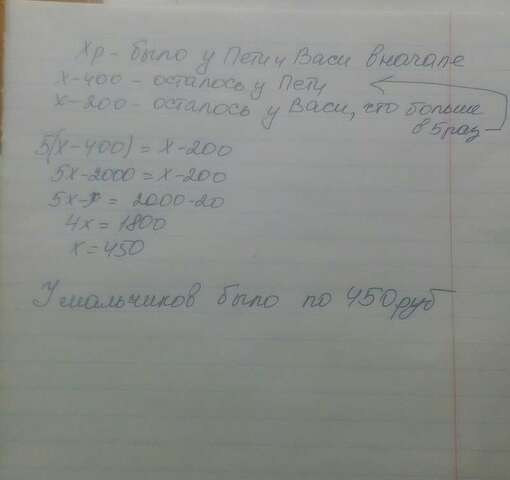 Xр - было у Пети и Васи вначале
x-400 - осталось у Пети
x-200 - осталось у Васи, что больше
в 5 раз
5(x-400) = x-200
5x-2000 = x-200
5x-x = 2000-20
4x = 1800
x = 450
У мальчиков было по 450 руб